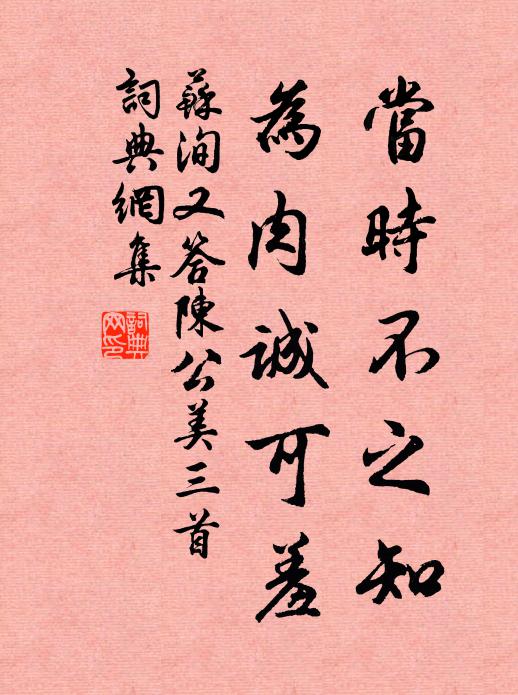 當時不之知
為肉誠可羞
蘇洵又答陳公美三首
詞典網集
詞典網印